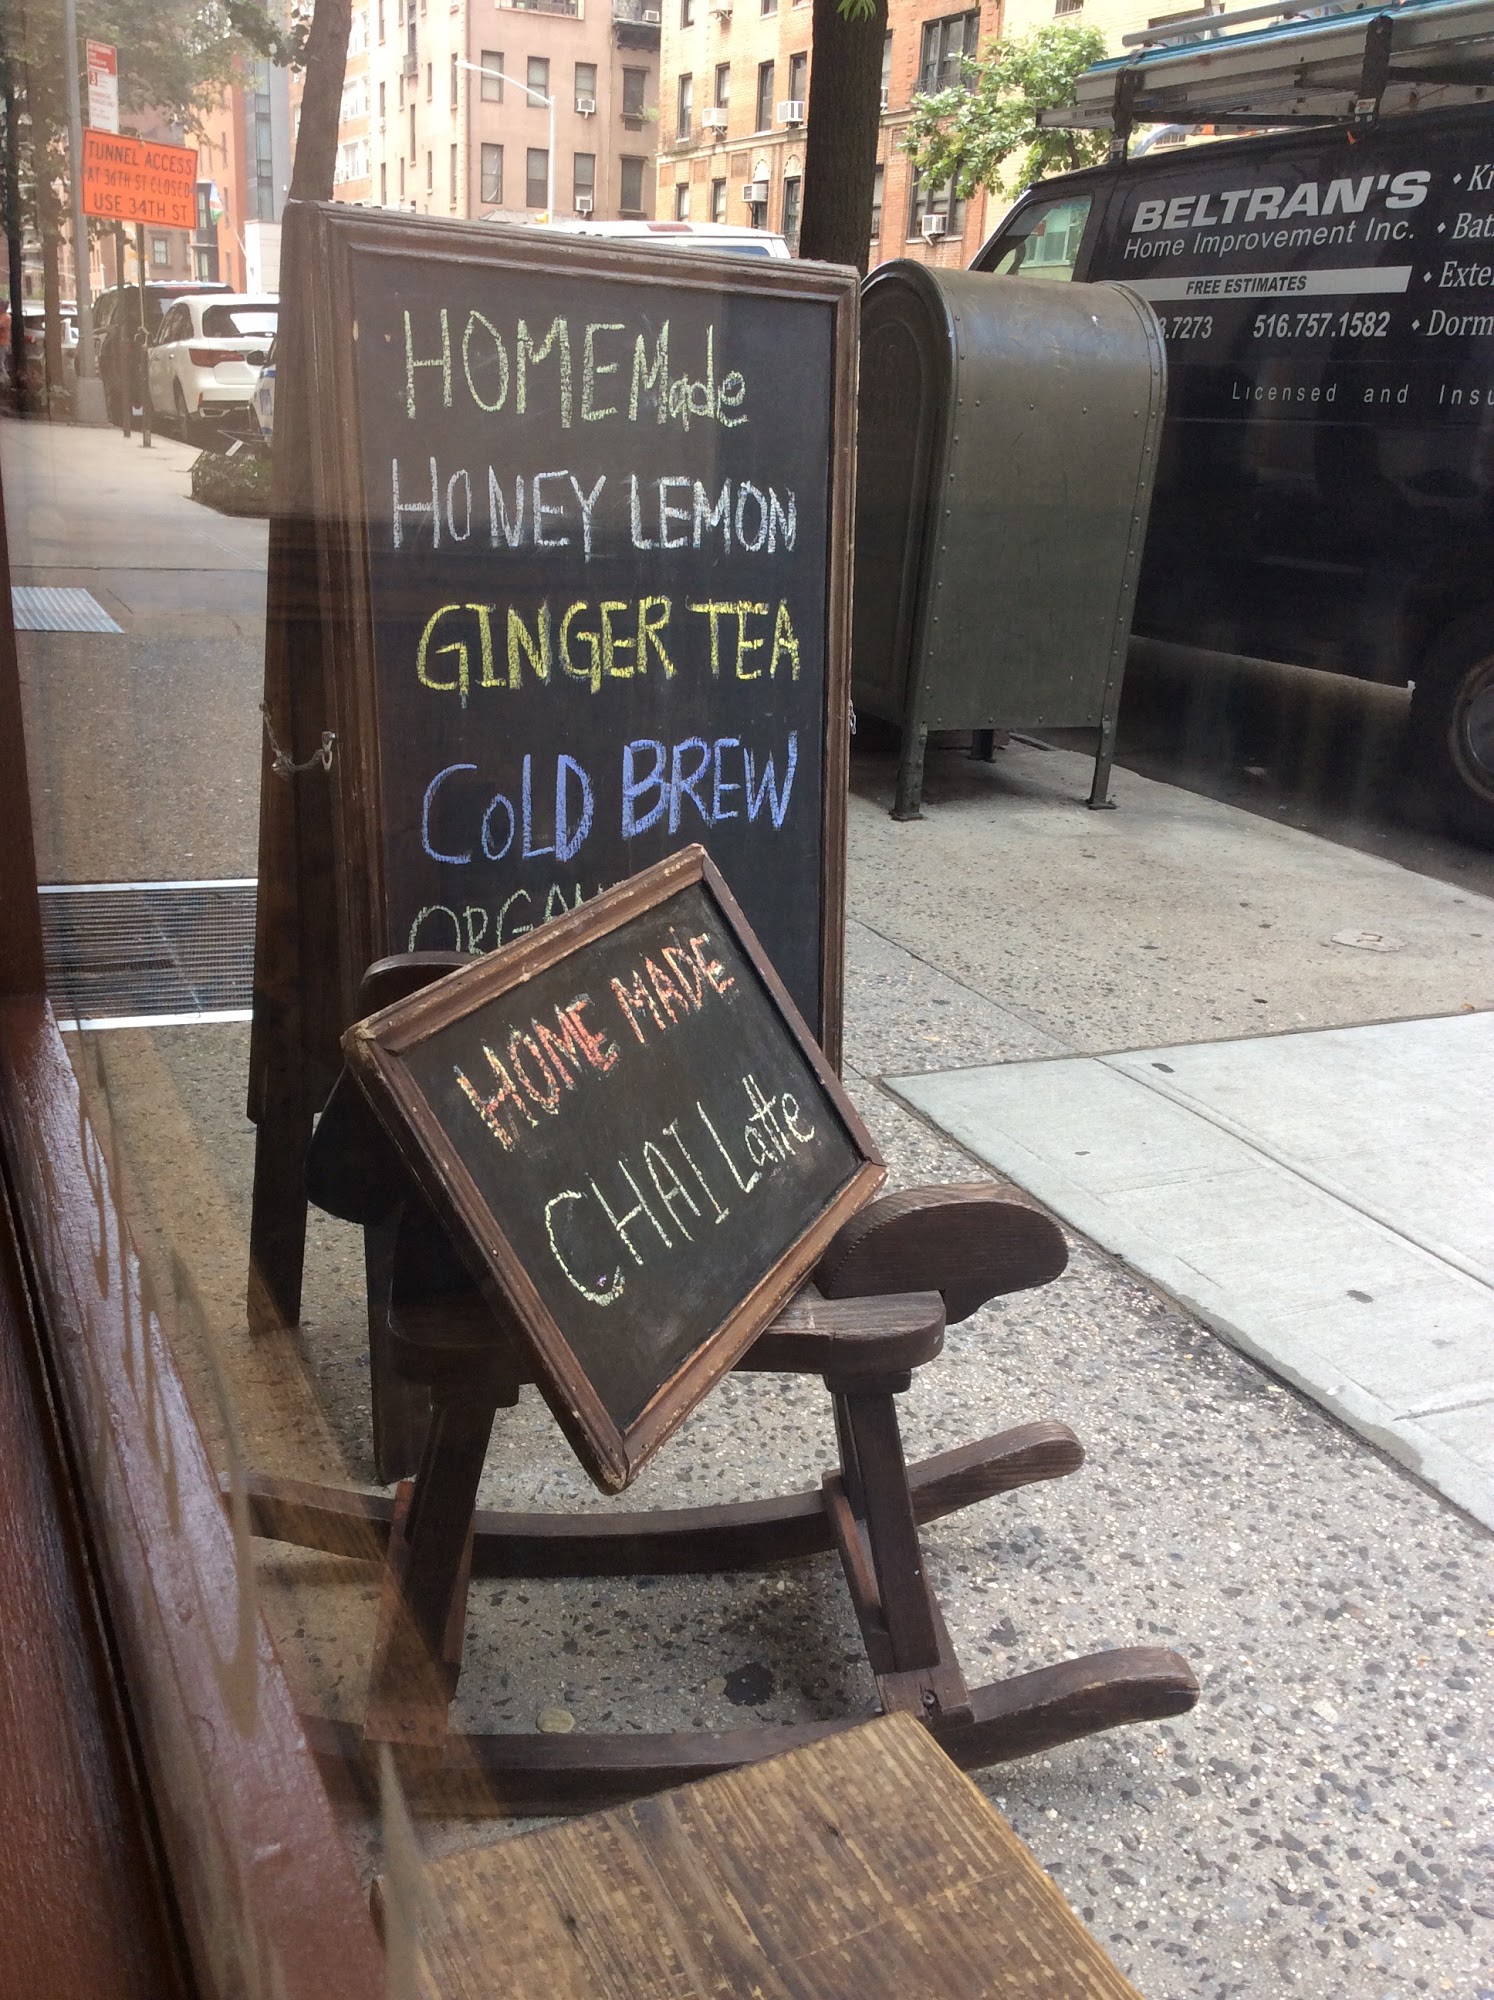 TUNNEL ACCESS
AT 36TH ST CLOSED
USE 34TH ST
HOMEMade
HONEY LEMON
GINGER TEA
COLD BREW
HOME MADE
CHAI Latte
BELTRAN'S
Home Improvement Inc.
FREE ESTIMATES
.7273 516.757.1582
Licensed and